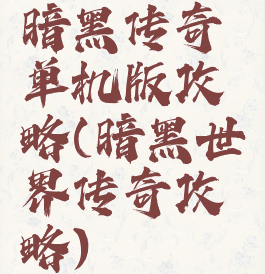 暗黑传奇
单机版攻
略(暗黑世
界传奇攻
略)